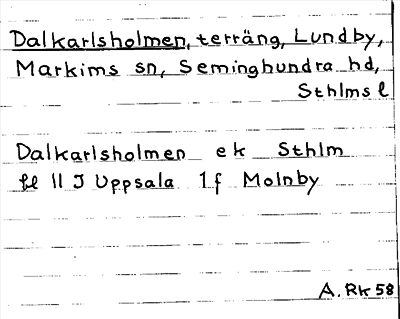 Dalkarlsholmen, terräng, Lundby,
Markims sn, Seminghundra hd,
Sthlms l
Dalkarlsholmen ek Sthlm
bl 11 J Uppsala 1f Molnby
A. Rk 58